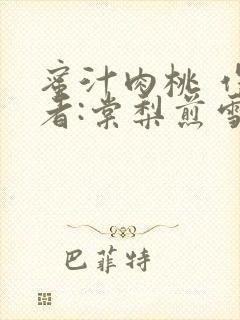 蜜汁肉桃 作
者:棠梨煎雪
巴菲特